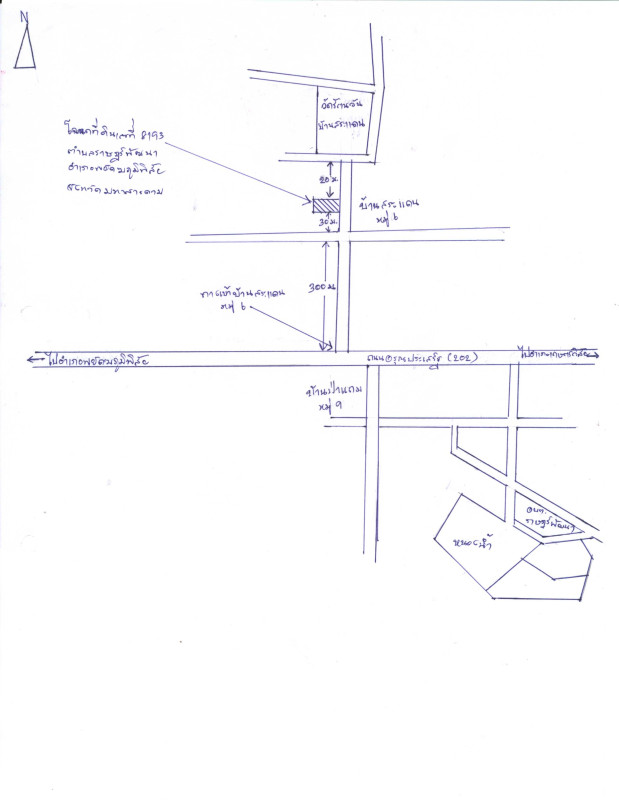 N
วัดรัตนชัน
บ้านสระแคน
โฉนดที่ดินเลขที่ 8193
ตำบลราษฎร์พัฒนา
อำเภอพยัคฆภูมิพิสัย
จังหวัดมหาสารคาม
20 ม.
30 ม.
บ้านสระแคน
หมู่ 6
300 ม
ทางเข้าบ้านสระแคน
หมู่ 6
ไปอำเภอพยัคฆภูมิพิสัย
ถนนอรุณประเสริฐ (202)
ไปอำเภอเกษตรวิสัย
บ้านป่าแถม
หมู่ 9
อบต.
ราษฎร์พัฒนา
หนองน้ำ